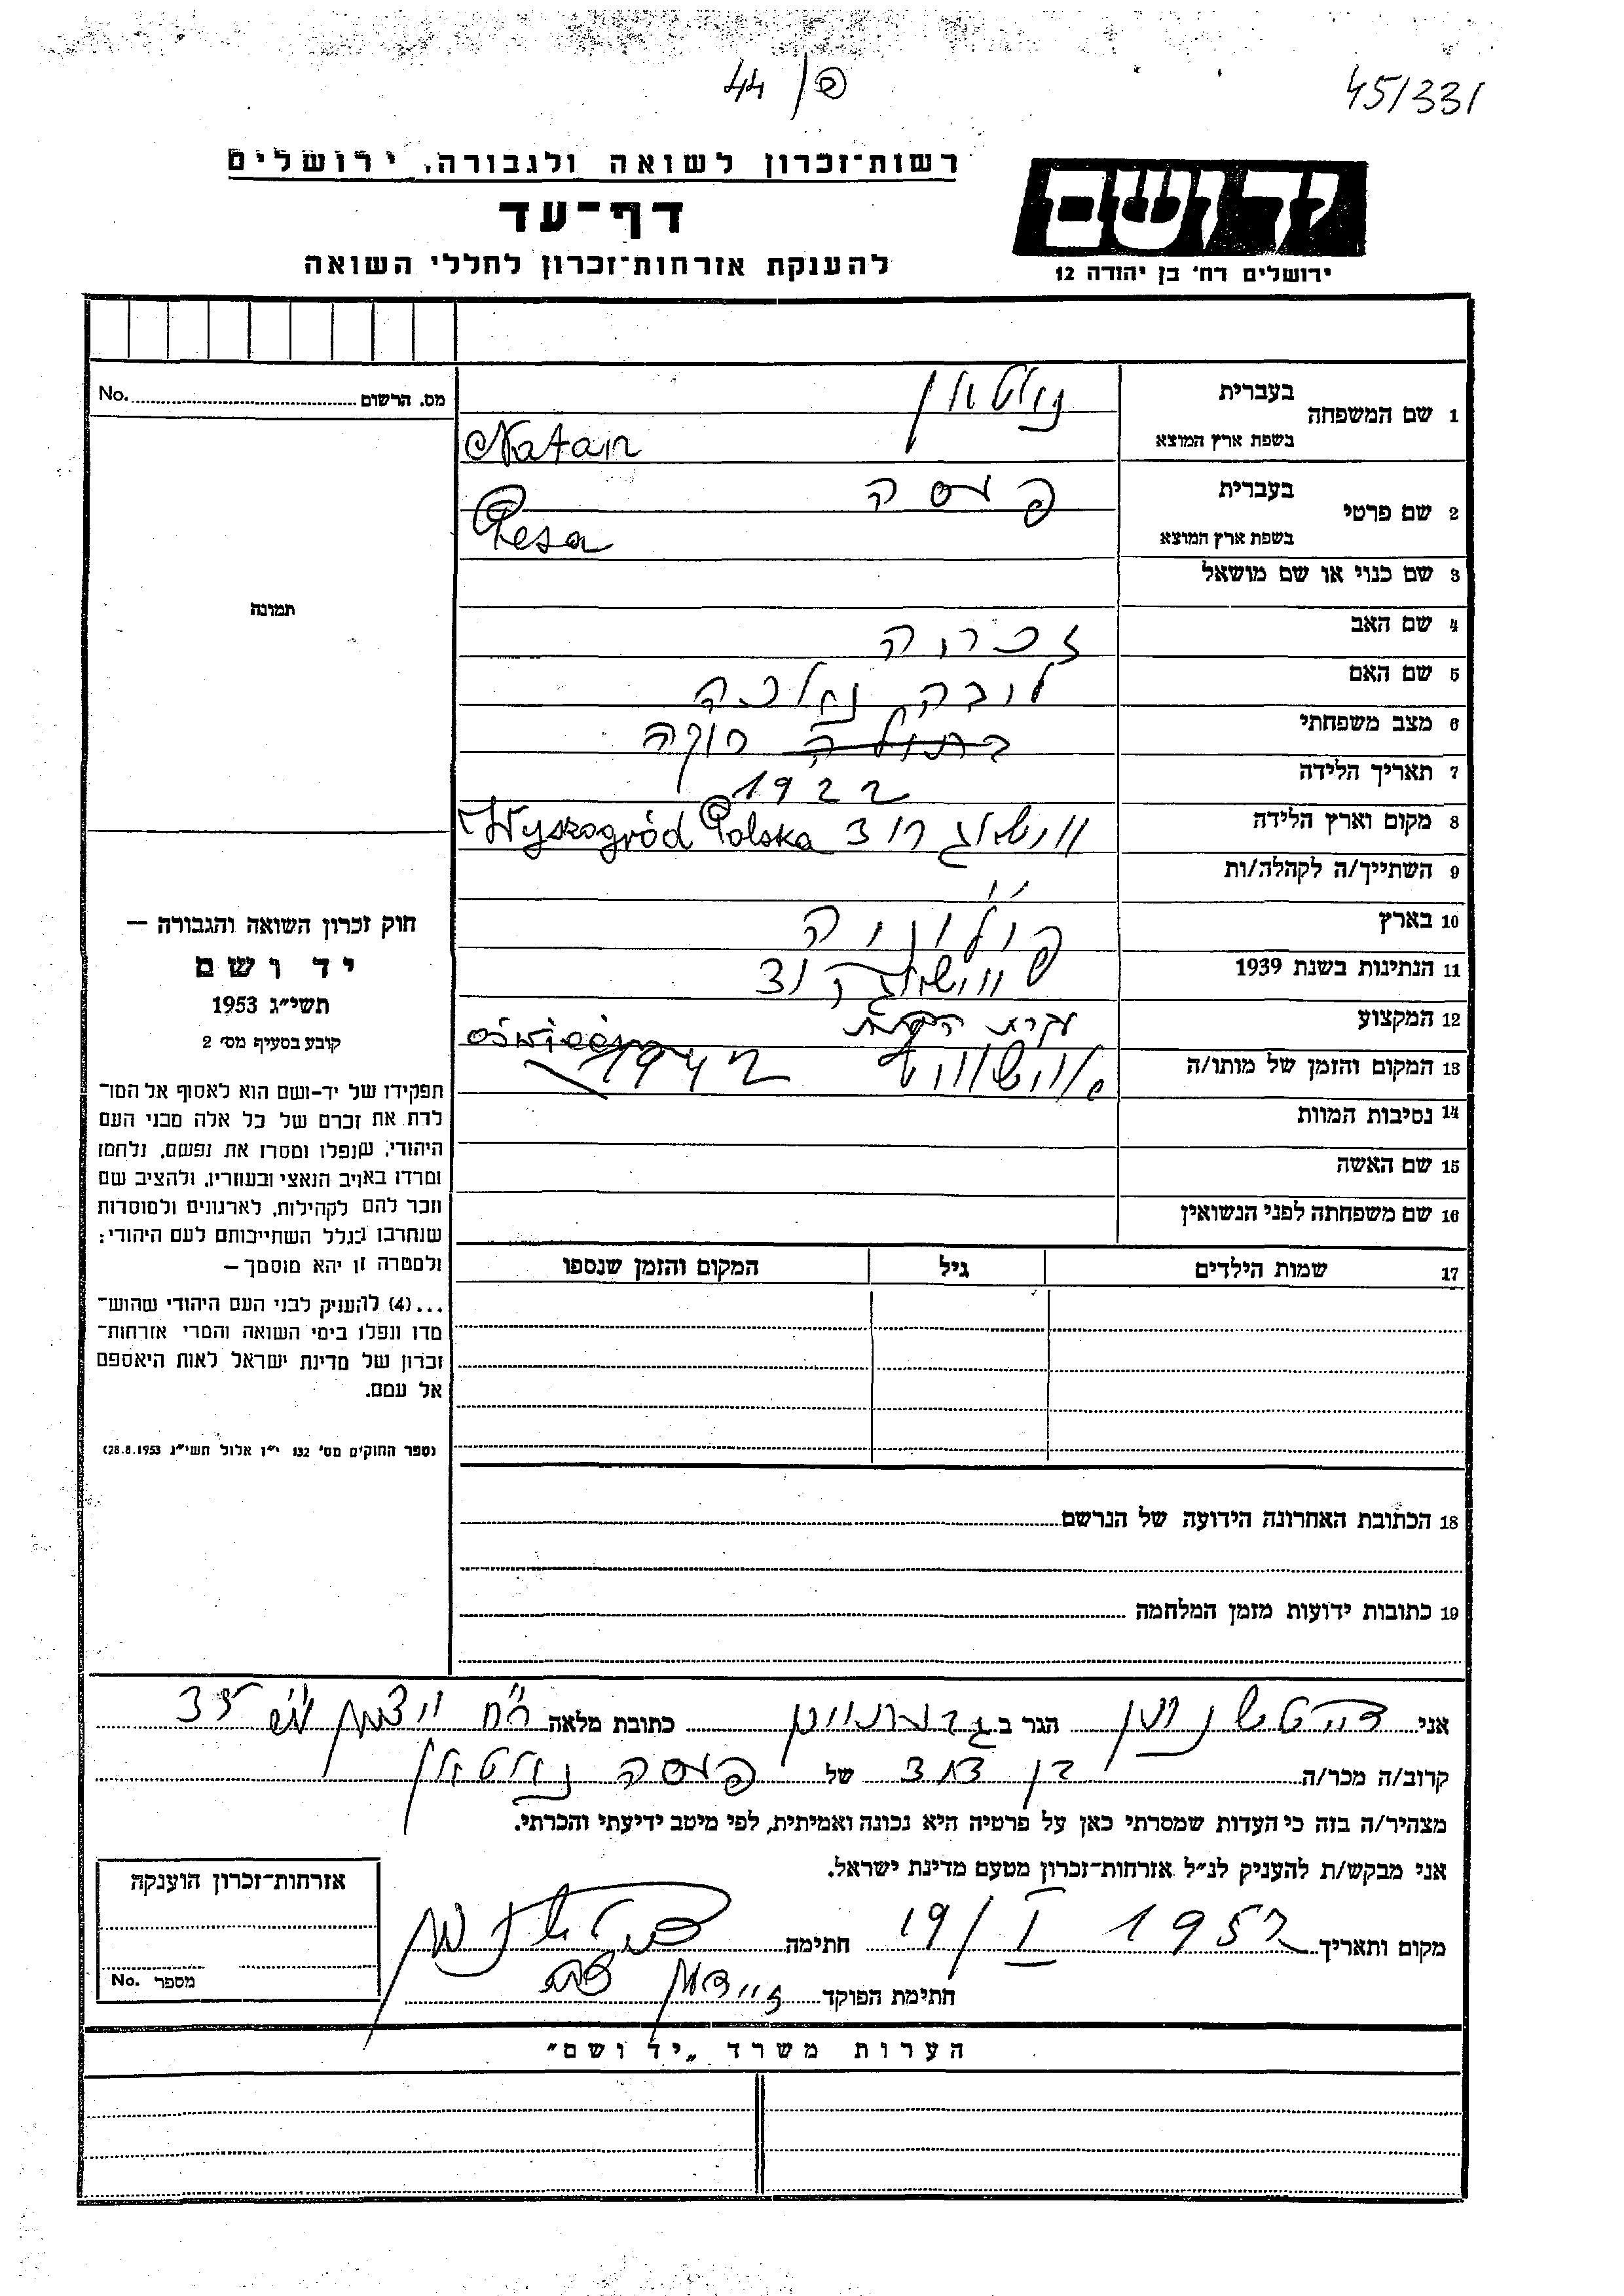 פ/44
45/331
רשות־זכרון לשואה ולגבורה, ירושלים
דף־עד
להענקת אזרחות־זכרון לחללי השואה
ידושם
ירושלים רח' בן יהודה 12
1 שם המשפחה
בעברית
נאטאן
בשפת ארץ המוצא
Natan
מס. הרשום No.
2 שם פרטי
בעברית
פעסה
בשפת ארץ המוצא
Pesa
3 שם כנוי או שם מושאל
תמונה
4 שם האב
5 שם האם
6 מצב משפחתי
בתולה רוקה
7 תאריך הלידה 1922
8 מקום וארץ הלידה Wyszogród Polska
9 השתייך/ה לקהלה/ות
10 בארץ
11 הנתינות בשנת 1939
12 המקצוע עקרת הבית
13 המקום והזמן של מותו/ה 1942
14 נסיבות המוות
15 שם האשה
16 שם משפחתה לפני הנשואין
17 שמות הילדים גיל המקום והזמן שנספו
חוק זכרון השואה והגבורה –
יד ושם
תשי״ג 1953
קובע בסעיף מס׳ 2
תפקידו של יד-ושם הוא לאסוף אל המו־
לדת את זכרם של כל אלה מבני העם
היהודי, שנפלו ומסרו את נפשם, נלחמו
ומרדו באויב הנאצי ובעוזריו, ולהציב שם
וזכר להם לקהילות, לארגונים ולמוסדות
שנחרבו בגלל השתייכותם לעם היהודי;
ולמטרה זו יהא מוסמך –
...(4) להעניק לבני העם היהודי שהוש־
מדו ונפלו בימי השואה והמרי אזרחות־
זכרון של מדינת ישראל לאות היאספם
אל עמם.
(ספר החוקים מס׳ 132 י״ז אלול תשי״ג 28.8.1953)
18 הכתובת האחרונה הידועה של הנרשם
19 כתובות ידועות מזמן המלחמה
אני הגר ב כתובת מלאה
קרוב/ה מכר/ה בן דוד של פעסה נאטאן
מצהיר/ה בזה כי העדות שמסרתי כאן על פרטיה היא נכונה ואמיתית, לפי מיטב ידיעתי והכרתי.
אני מבקש/ת להעניק לנ״ל אזרחות־זכרון מטעם מדינת ישראל.
מקום ותאריך 19/I 1957 חתימה
חתימת הפוקד
אזרחות־זכרון הוענקה
מספר No.
הערות משרד „יד ושם״